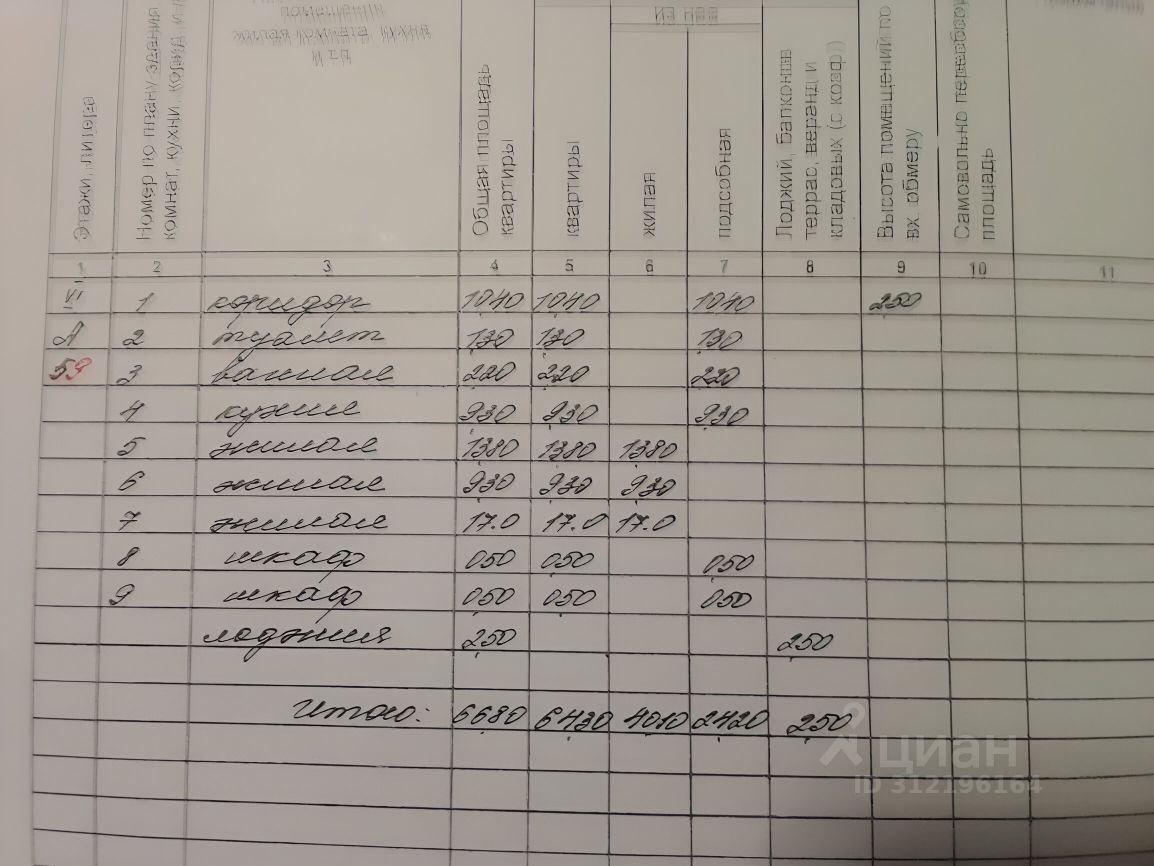 Этажи, литера
Номер по плану здания
комнат, кухни, корид и
Общая площадь
квартиры
ИЗ НЕЕ
квартиры
жилая
подсобная
Лоджий, балконов
террас, веранд и
кладовых (с коэф.)
Высота помещений по
вн. обмеру
Самовольно переоборуд
площадь
1 2 3 4 5 6 7 8 9 10 11
VI 1 коридор 10,40 10,40 10,40 2,50
А 2 туалет 1,30 1,30 1,30
59 3 ванная 2,20 2,20 2,20
4 кухня 9,30 9,30 9,30
5 жилая 13,80 13,80 13,80
6 жилая 9,30 9,30 9,30
7 жилая 17.0 17.0 17.0
8 шкаф 0,50 0,50 0,50
9 шкаф 0,50 0,50 0,50
лоджия 2,50 2,50
Итого: 66,80 64,30 40,10 24,20 2,50
циан
ID 312196164